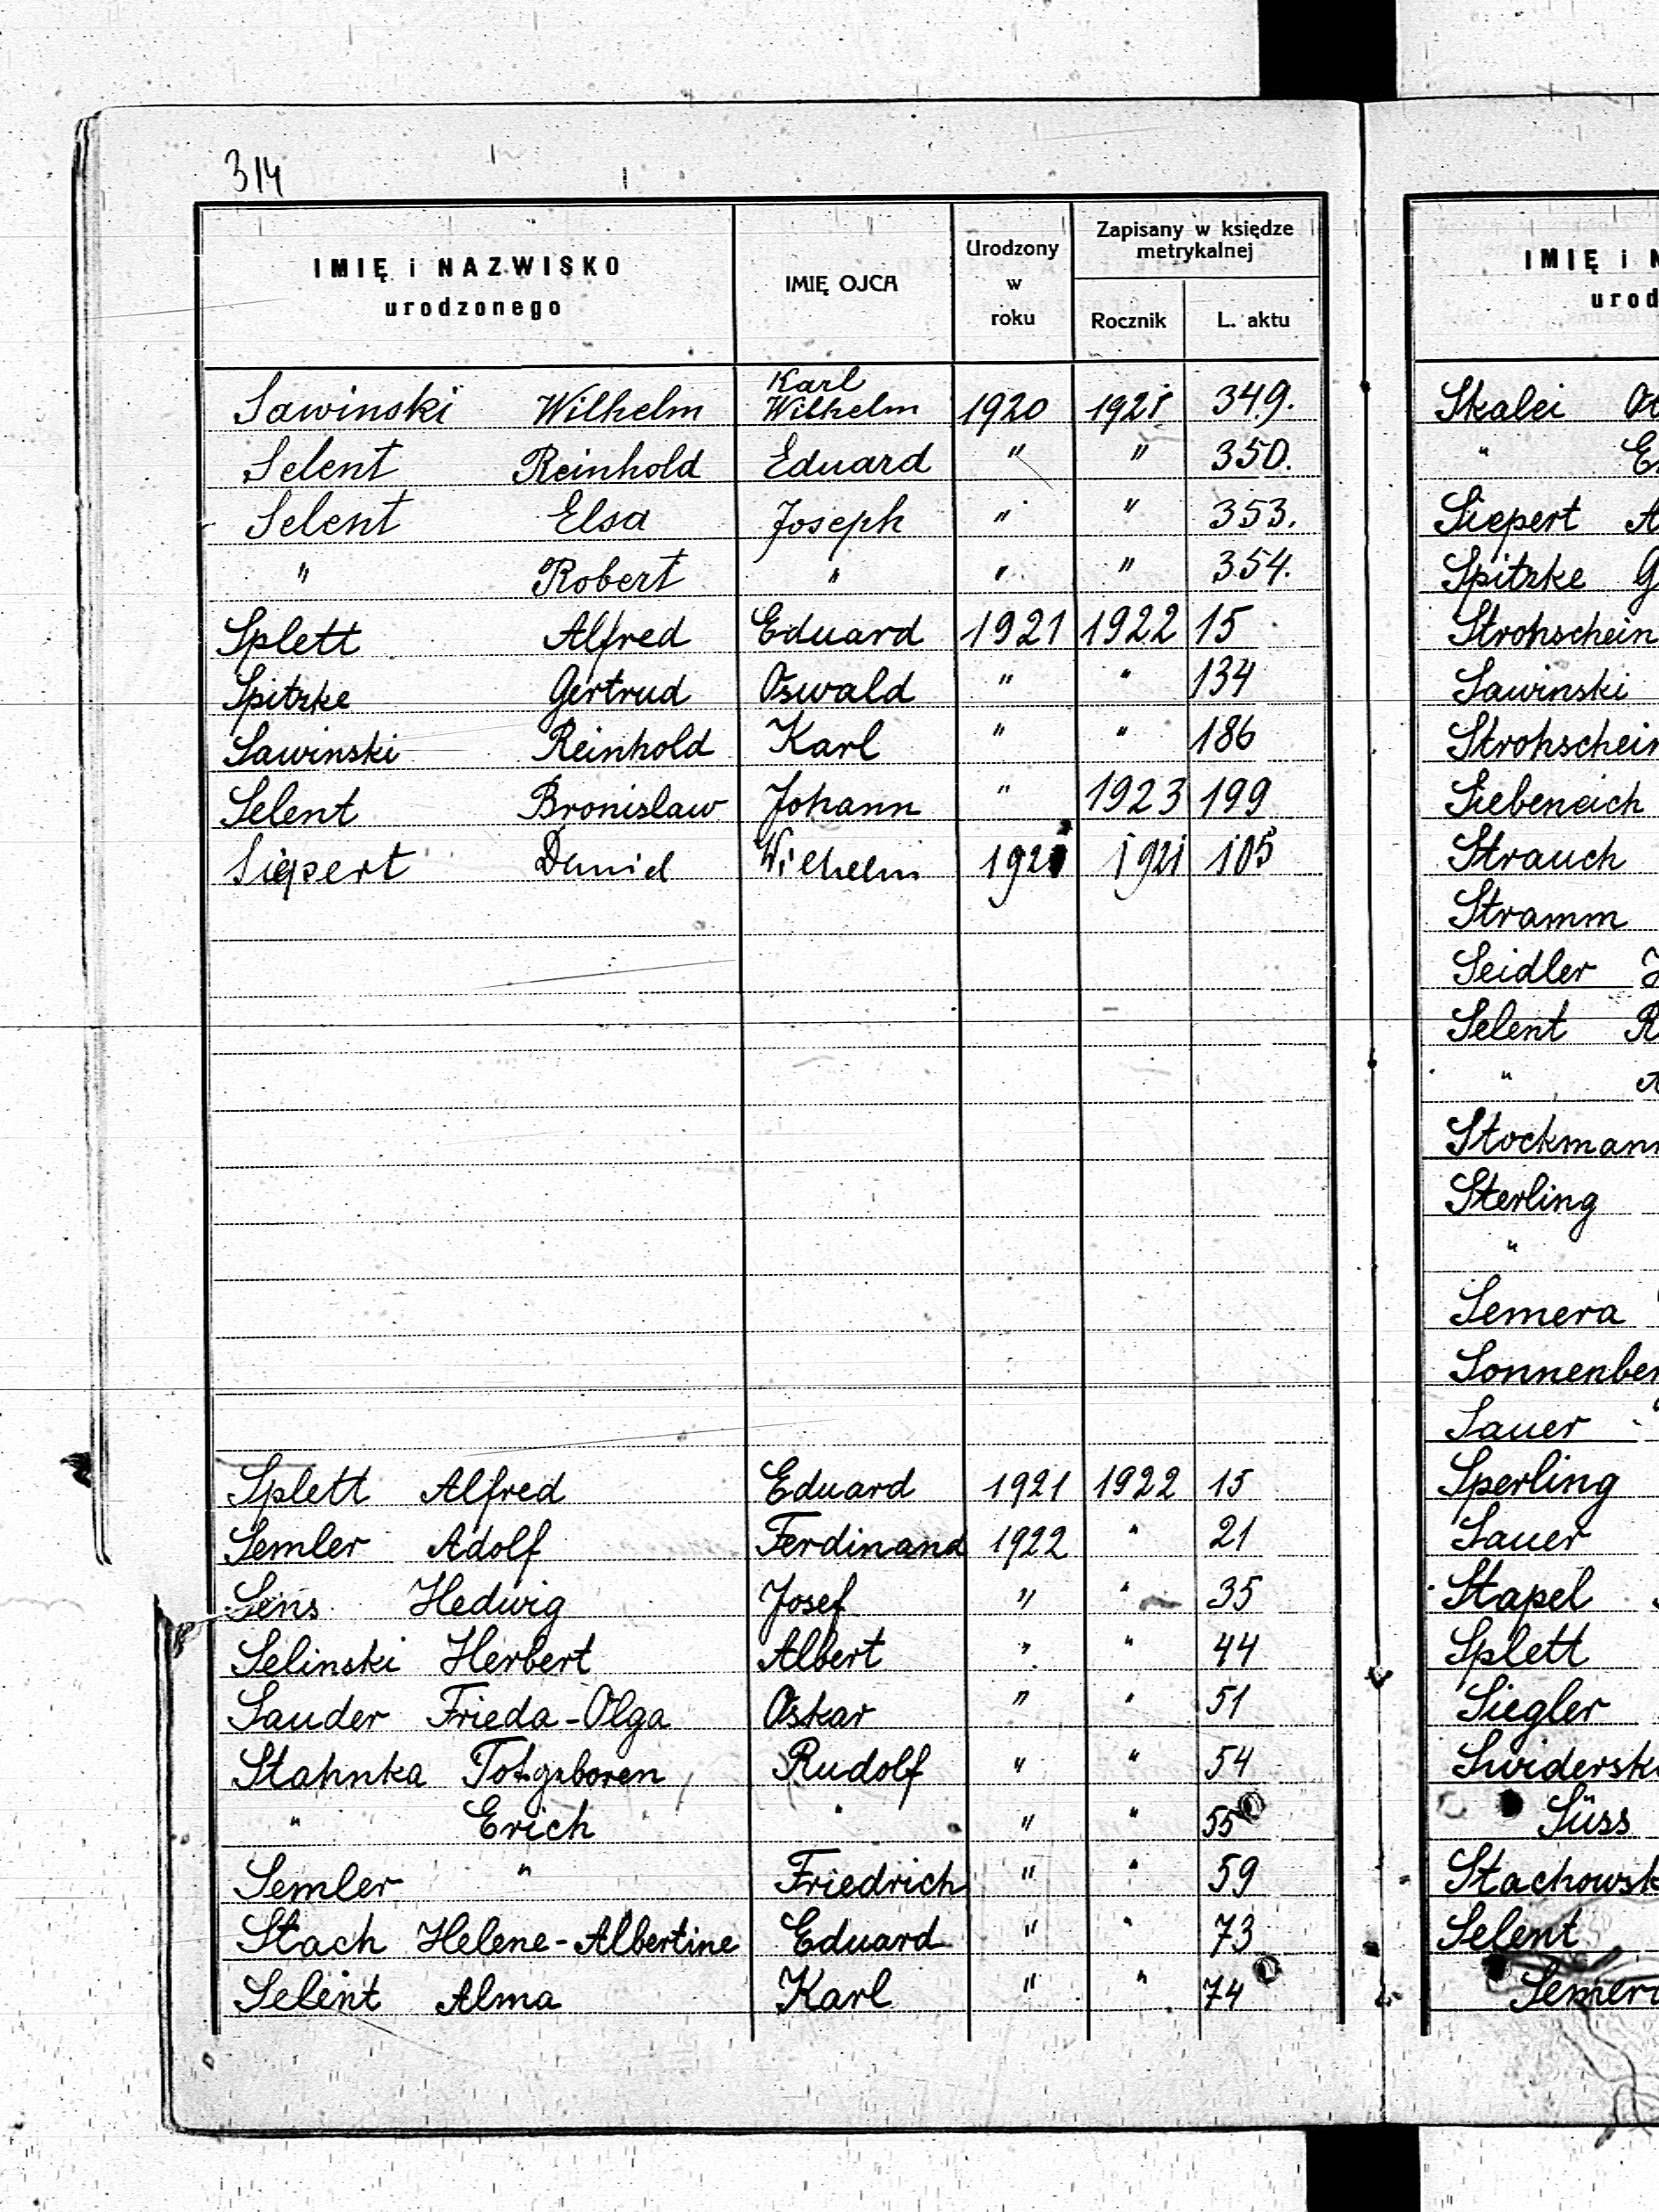 314
IMIĘ i NAZWISKO urodzonego | IMIĘ OJCA | Urodzony w roku | Zapisany w księdze metrykalnej
Rocznik | L. aktu
Sawinski Wilhelm | Karl Wilhelm | 1920 | 1921 | 349.
Selent Reinhold | Eduard | " | " | 350.
Selent Elsa | Joseph | " | " | 353.
" Robert | " | " | " | 354.
Splett Alfred | Eduard | 1921 | 1922 | 15
Spitzke Gertrud | Oswald | " | " | 134
Sawinski Reinhold | Karl | " | " | 186
Selent Bronislaw | Johann | " | 1923 | 199
Siepert Daniel | Wilhelm | 1921 | 1921 | 105
Splett Alfred | Eduard | 1921 | 1922 | 15
Semler Adolf | Ferdinand | 1922 | " | 21
Sens Hedwig | Josef | " | " | 35
Selinski Herbert | Albert | " | " | 44
Sauder Frieda-Olga | Oskar | " | " | 51
Stahnka Totgeboren | Rudolf | " | " | 54
" Erich | " | " | " | 55
Semler " | Friedrich | " | " | 59
Stach Helene-Albertine | Eduard | " | " | 73
Selent Alma | Karl | " | " | 74
IMIĘ i N
urod
Skalei Ot
" E
Siepert A
Spitzke G
Strohschein
Sawinski
Strohschein
Siebeneich
Strauch
Stramm
Seidler J
Selent R
" A
Stockmann
Sterling
"
Semera
Sonnenber
Sauer
Sperling
Sauer
Stapel
Splett
Siegler
Swidersk
Süss
Stachowsk
Selent
Semer